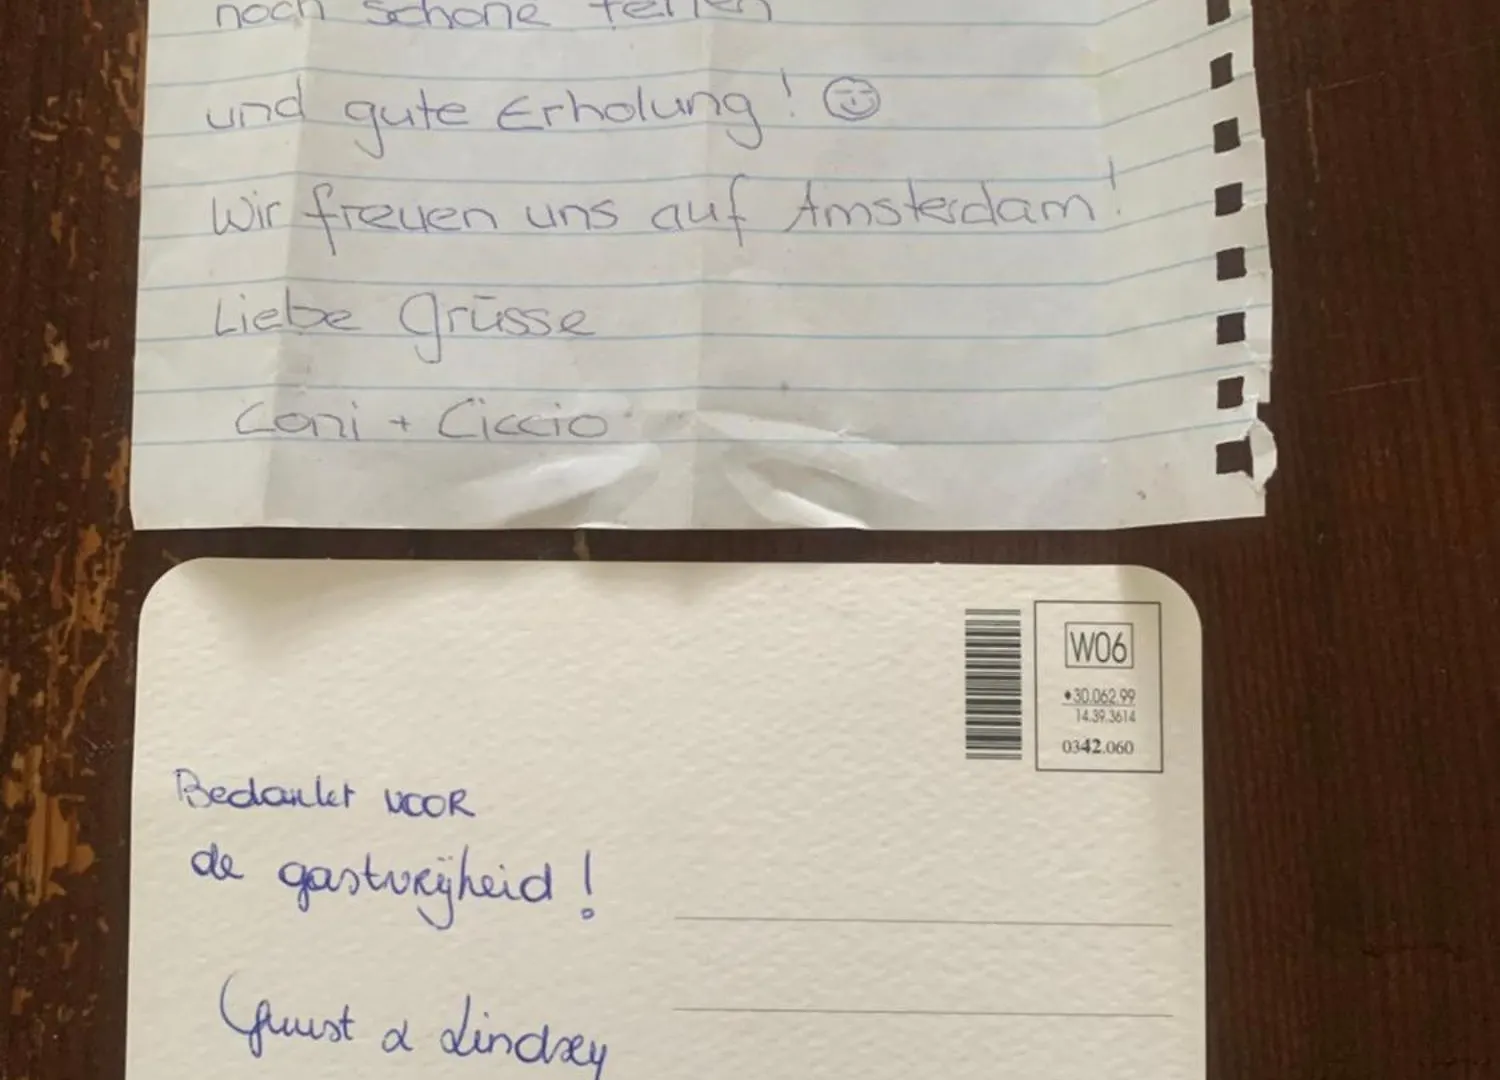 noch schöne Ferien
und gute Erholung! ☺
Wir freuen uns auf Amsterdam!
Liebe Grüsse
Coni + Ciccio
W06
♦30.062.99
14.39.3614
0342.060
Bedankt voor
de gastvrijheid!
Guust & Lindsey